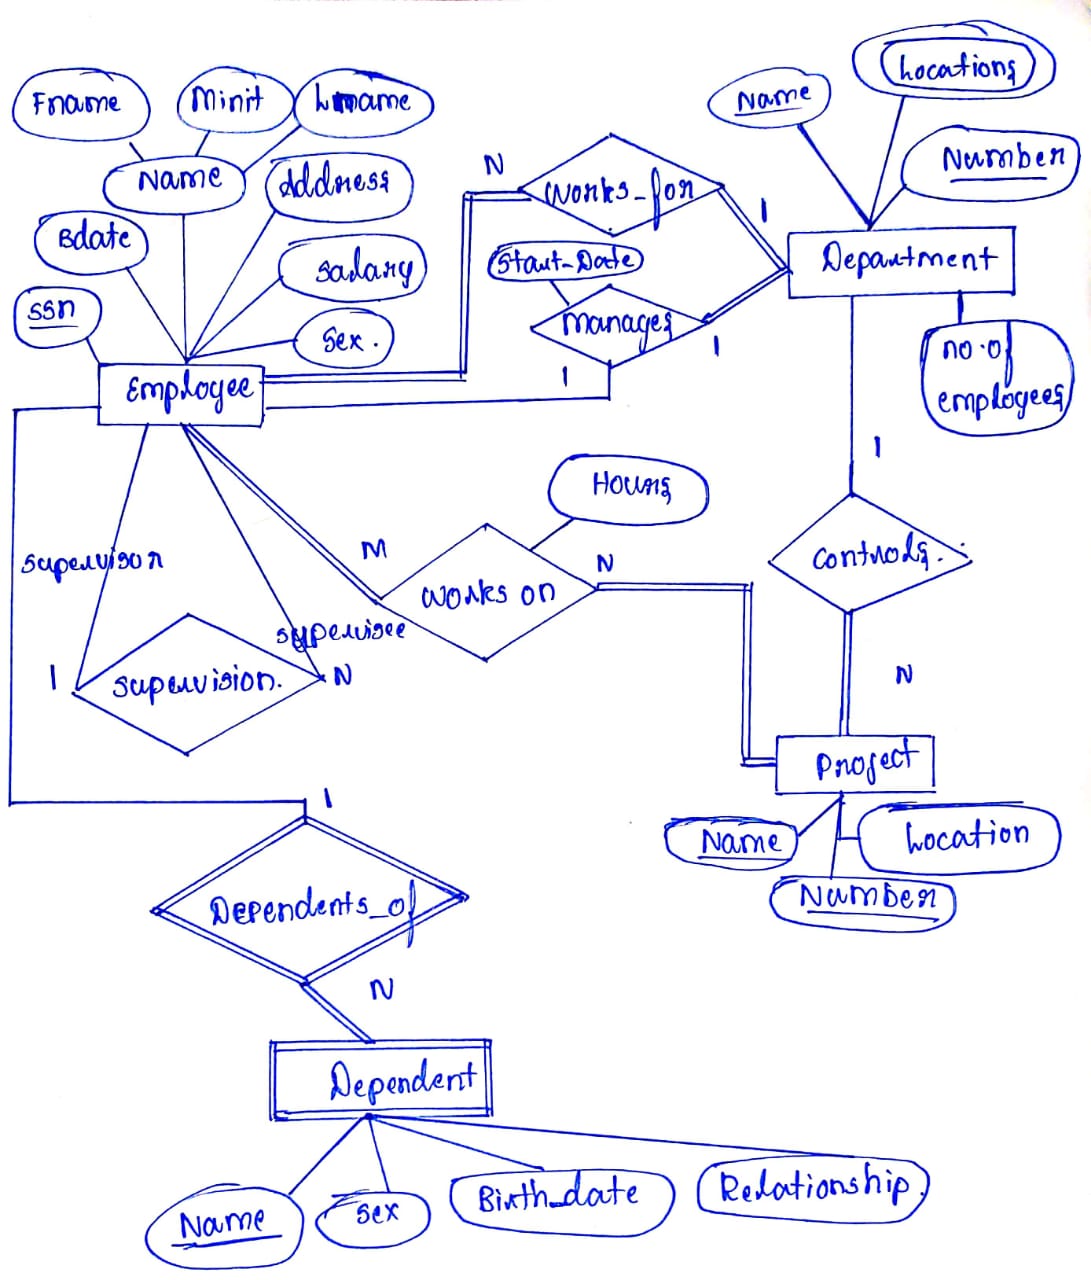 Fname
Minit
Lname
Name
Address
Bdate
Salary
ssn
Sex.
Employee
N
Works_for
1
Start_Date
Manages
1
1
Name
Locations
Number
Department
no.of
employees
1
Controls.
N
Hours
M
Works on
N
supervisor
supervisee
1
supervision.
N
Project
Name
Location
Number
1
Dependents_of
N
Dependent
Name
Sex
Birth_date
Relationship